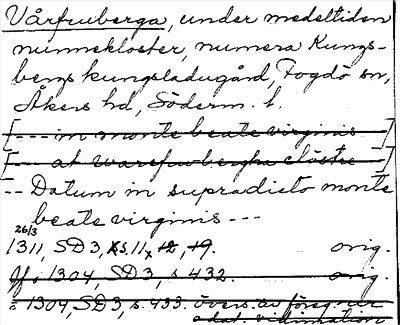 Vårfruberga, under medeltiden
nunnekloster, numera Kungs-
bergs kungsladugård, Fogdö sn,
Åkers hd, Söderm. l.
[--- in monte beate virginis ---]
[-- at warefrwbergha clöstre --]
-- Datum in supradicto monte
beate virginis ---
26/3
1311, SD 3, s. 11, 12, 19. orig.
Jf. 1304, SD 3, s. 432. orig.
1304, SD 3, s. 433. övers. av föreg. ur
odat. vidimation